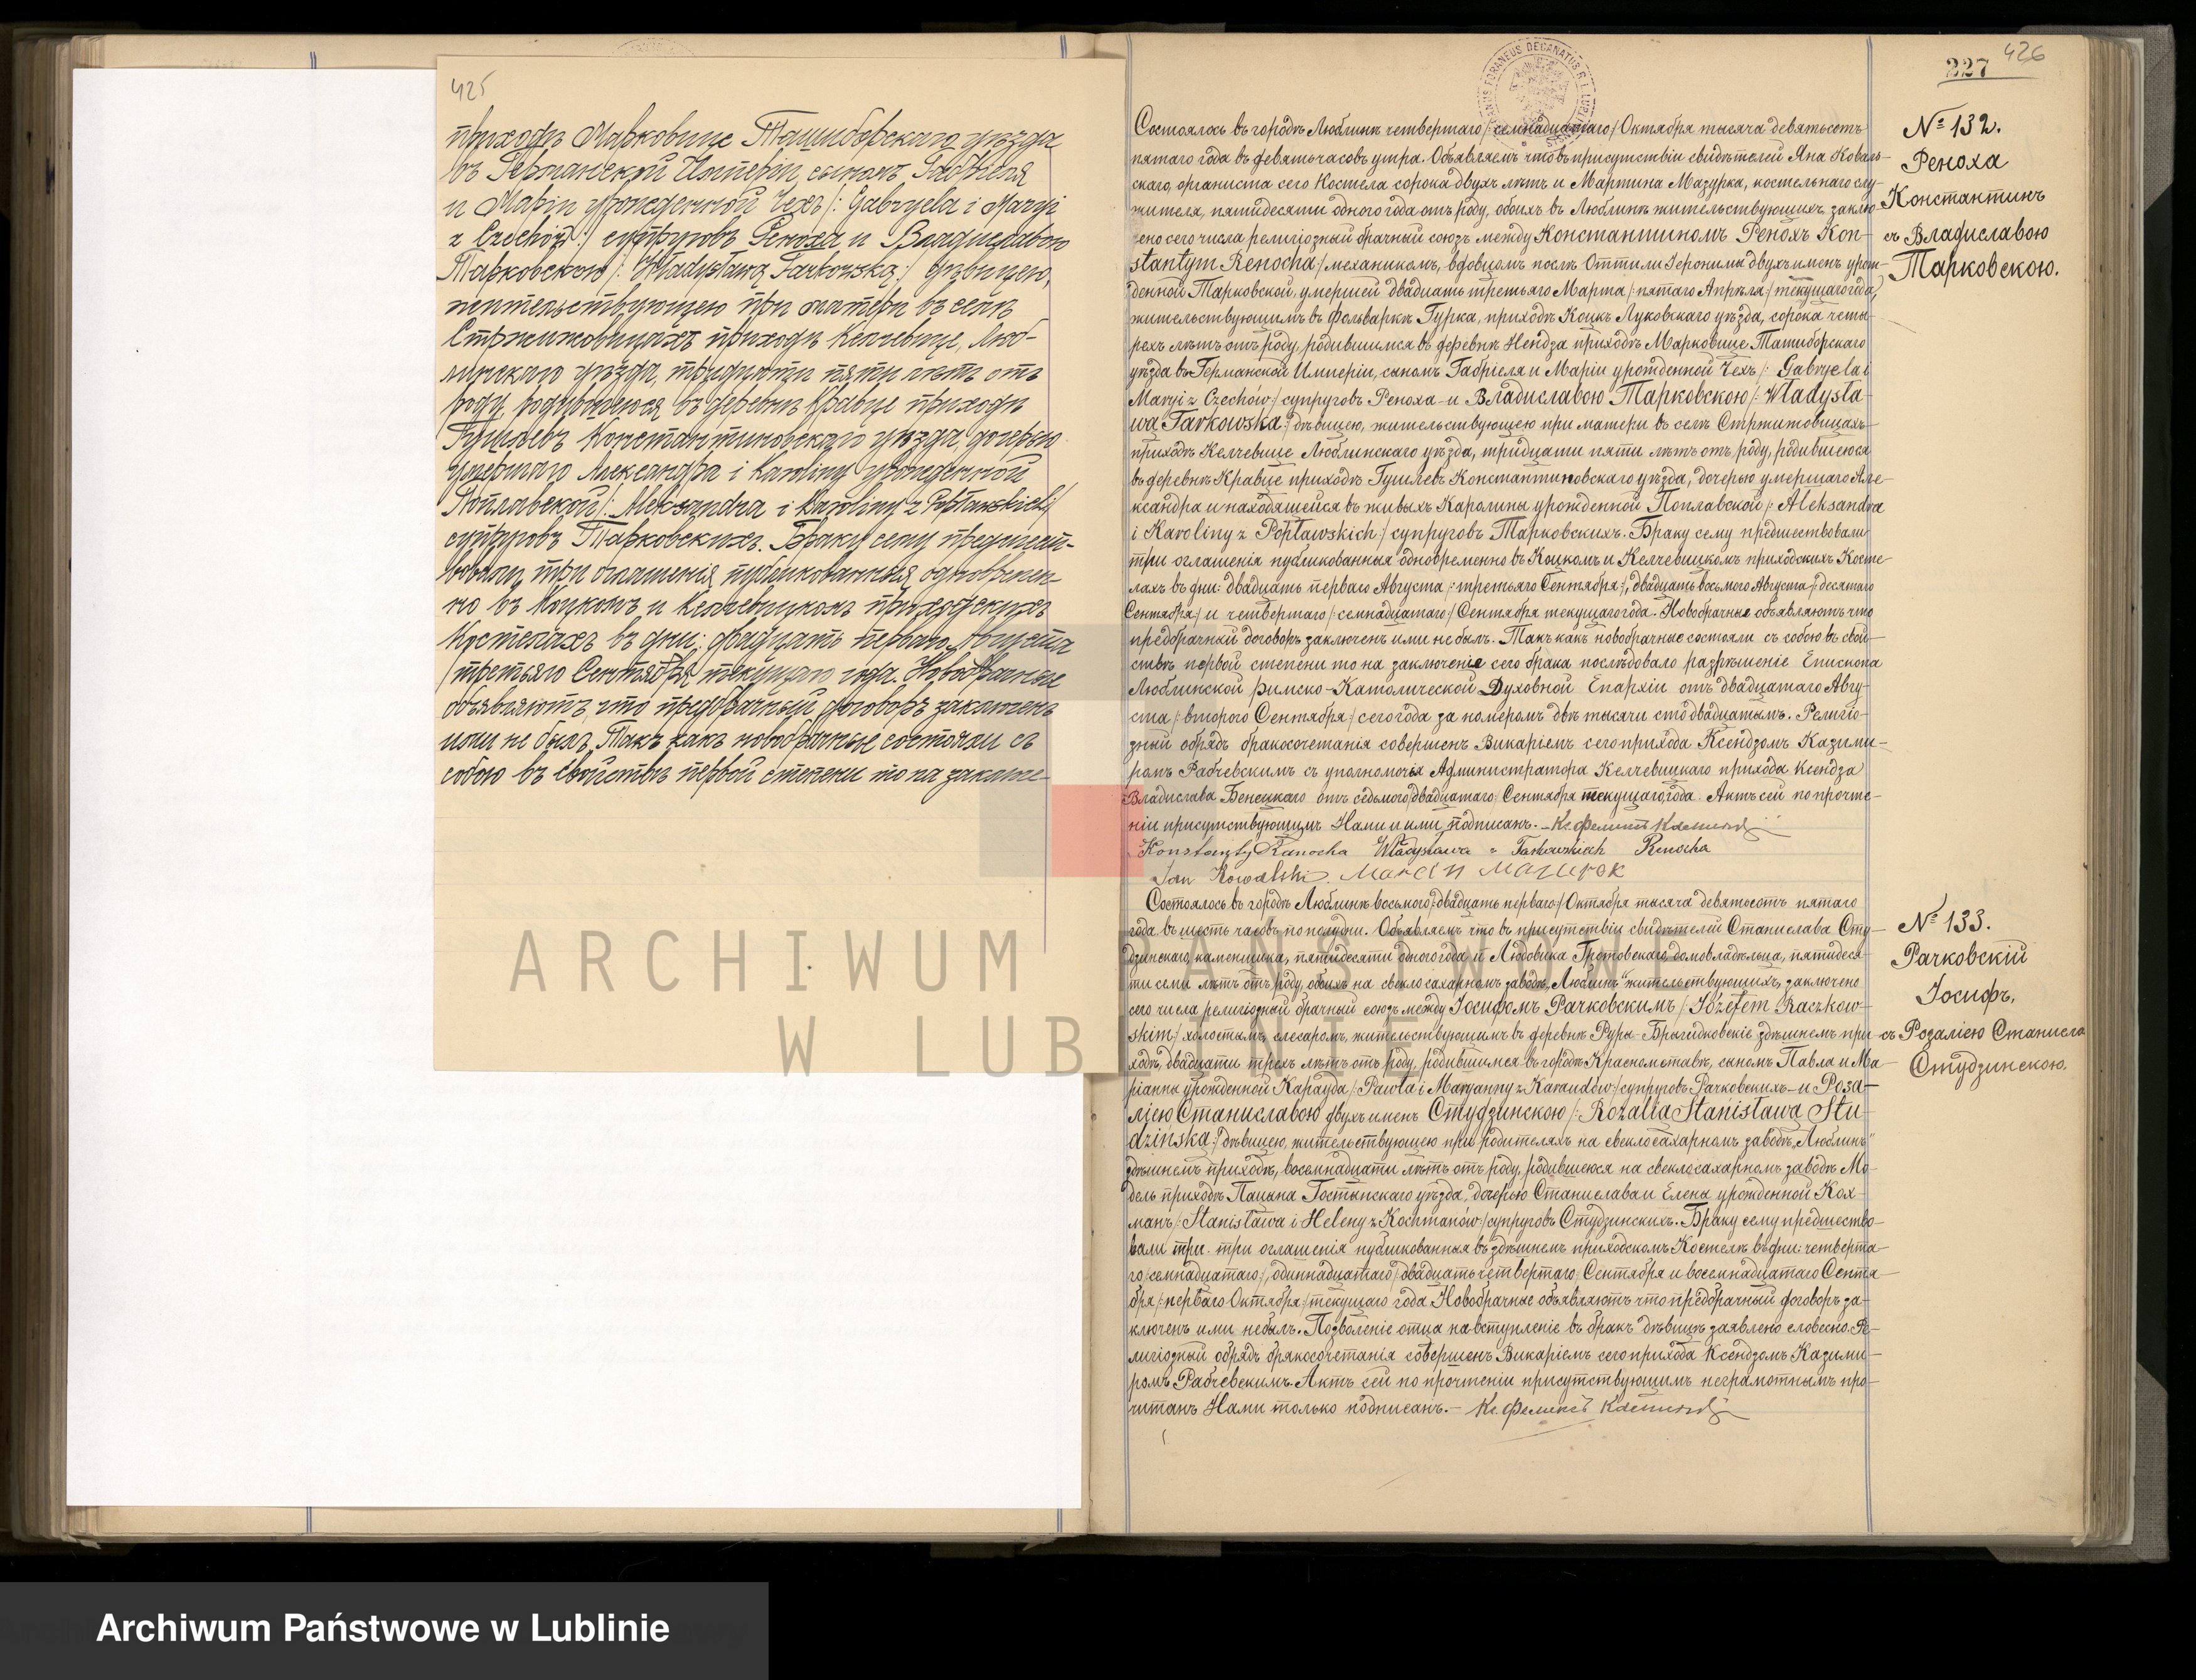 425
приходѣ Марковице Ташиборскаго уѣзда
въ Германской Имперіи, сыномъ Габріеля
и Маріи урожденной Чехъ /: Gabryela i Maryi
z Czechów :/ супруговъ Реноха и Владиславою
Тарковскою /: Władysławą Tarkowską :/ дѣвицею,
жительствующею при матери въ селѣ
Стржижовицахъ приходѣ Келчевице, Люб-
линскаго уѣзда, тридцати пяти лѣтъ отъ
роду, родившеюся въ деревнѣ Кравце приходѣ
Константиновскаго уѣзда, дочерью
умершаго Александра i Karoliny урожденной
Поплавской /: Aleksandra i Karoliny z Popławskich :/
супруговъ Тарковскихъ. Браку сему предшест-
вовали три оглашенія публикованныя одновремен-
но въ Коцкомъ и Келчевицкомъ приходскихъ
Костелахъ въ дни: двадцать перваго Августа
/ третьяго Сентября текущаго года. Новобрачные
объявляютъ, что предбрачный договоръ заключенъ
ими не былъ. Такъ какъ новобрачные состояли съ
собою въ свойствѣ первой степени то на заключе-
426
227
Состоялось въ городѣ Люблинѣ четвертаго /: семнадцатаго :/ Октября тысяча девятьсотъ
пятаго года въ девять часовъ утра. Объявляемъ что въ присутствіи свидѣтелей Яна Коваль-
скаго, органиста сего Костела сорока двухъ лѣтъ и Мартина Мазурка, костельнаго слу-
жителя, пятидесяти одного года отъ роду, обоихъ въ Люблинѣ жительствующихъ, заклю-
чено сего числа религіозный брачный союзъ между Константиномъ Ренохъ /: Kon-
stantym Renocha :/ механикомъ, вдовцомъ послѣ Оттили Іеронимы двухъ именъ урож-
денной Тарковской, умершей двадцать третьяго Марта /: пятаго Апрѣля :/ текущаго года,
жительствующимъ въ Фольваркѣ Гурка, приходѣ Коцкъ Луковскаго уѣзда, сорока четы-
рехъ лѣтъ отъ роду, родившимся въ деревнѣ Нендза приходѣ Марковице Ташиборскаго
уѣзда въ Германской Имперіи, сыномъ Габріеля и Маріи урожденной Чехъ /: Gabryela i
Maryi z Czechów :/ супруговъ Реноха – и Владиславою Тарковскою /: Władysła-
wą Tarkowską :/ дѣвицею, жительствующею при матери въ селѣ Стржижовицахъ
приходѣ Келчевице Люблинскаго уѣзда, тридцати пяти лѣтъ отъ роду, родившеюся
въ деревнѣ Кравце приходѣ Гушлевъ Константиновскаго уѣзда, дочерью умершаго Але-
ксандра и находящейся въ живыхъ Каролины урожденной Поплавской /: Aleksandra
i Karoliny z Popławskich :/ супруговъ Тарковскихъ. Браку сему предшествовали
три оглашенія публикованныя одновременно въ Коцкомъ и Келчевицкомъ приходскихъ Косте-
лахъ въ дни: двадцать перваго Августа /: третьяго Сентября :/, двадцать восьмого Августа /: десятаго
Сентября :/ и четвертаго /: семнадцатаго :/ Сентября текущаго года. Новобрачные объявляютъ что
предбрачный договоръ заключенъ ими не былъ. Такъ какъ новобрачные состояли съ собою въ свой-
ствѣ первой степени то на заключеніе сего брака послѣдовало разрѣшеніе Епископа
Люблинской Римско-Католической Духовной Епархіи отъ двадцатаго Авгу-
ста /: второго Сентября :/ сего года за номеромъ двѣ тысячи сто двадцатымъ. Религіо-
зный обрядъ бракосочетанія совершенъ Викаріемъ сего прихода Ксендзомъ Казими-
ромъ Рабчевскимъ съ уполномочія Администратора Келчевицкаго прихода Ксендза
Владислава Бенецкаго отъ седьмого /: двадцатаго :/ Сентября текущаго года. Актъ сей по прочте-
ніи присутствующимъ Нами и ими подписанъ. – Кс. Феликсъ
Konstanty Ranocha Władysława z Tarkowskich Renocha
Jan Kowalski. Marcin Mazurek
Состоялось въ городѣ Люблинѣ восьмого /: двадцать перваго :/ Октября тысяча девятьсотъ пятаго
года въ шесть часовъ по полудни. Объявляемъ что въ присутствіи свидѣтелей Станислава Сту-
дзинскаго, каменщика, пятидесяти одного года и Людовика Гротовскаго домовладѣльца, пятидеся-
ти семи лѣтъ отъ роду, обоихъ на свеклосахарномъ заводѣ „Люблинъ" жительствующихъ, заключено
сего числа религіозный брачный союзъ между Іосифомъ Рачковскимъ /: Józefem Raczkow-
skim :/ холостымъ, слесаромъ, жительствующимъ въ деревнѣ Руры-Брыгидковскіе здѣшнемъ при-
ходѣ, двадцати трехъ лѣтъ отъ роду, родившимся въ городѣ Красноставѣ, сыномъ Павла и Ма-
ріанны урожденной Карауда /: Pawła i Maryanny z Karaudów :/ супруговъ Рачковскихъ – и Роза-
ліею Станиславою двухъ именъ Студзинскою /: Rozalią Stanisławą Stu-
dzinską :/ дѣвицею, жительствующею при родителяхъ на свеклосахарномъ заводѣ „Люблинъ"
здѣшнемъ приходѣ, восемнадцати лѣтъ отъ роду, родившеюся на свеклосахарномъ заводѣ Мо-
дель приходѣ Пацына Гостынскаго уѣзда, дочерью Станислава и Елены урожденной Кох-
манъ /: Stanisława i Heleny z Kochmanów :/ супруговъ Студзинскихъ. Браку сему предшество-
вали три три оглашенія публикованныя въ здѣшнемъ приходскомъ Костелѣ въ дни: четверта-
го /: семнадцатаго :/, одиннадцатаго /: двадцать четвертаго :/ Сентября и восемнадцатаго Сентя-
бря /: перваго Октября :/ текущаго года. Новобрачные объявляютъ что предбрачный договоръ за-
ключенъ ими не былъ. Позволеніе отца на вступленіе въ бракъ дѣвицѣ заявлено словесно. Ре-
лигіозный обрядъ бракосочетанія совершенъ Викаріемъ сего прихода Ксендзомъ Казими-
ромъ Рабчевскимъ. Актъ сей по прочтеніи присутствующимъ неграмотнымъ про-
читанъ Нами только подписанъ. – Кс. Феликсъ
№ 132.
Реноха
Константинъ
съ Владиславою
Тарковскою.
№ 133.
Рачковскій
Іосифъ,
съ Розаліею Станисла
Студзинскою.
ARCHIWUM PAŃSTWOWE
W LUBLINIE
Archiwum Państwowe w Lublinie